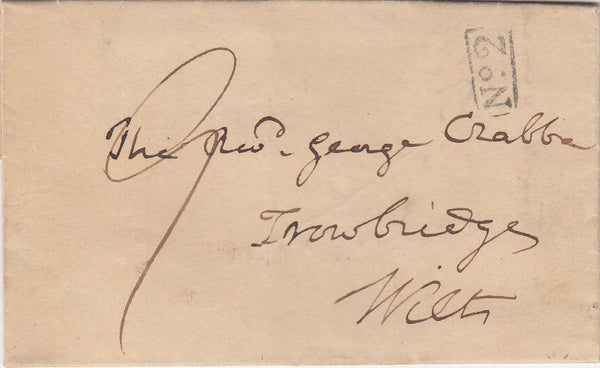 No. 2
9
The Revd. George Crabbe
Trowbridge
Wilts